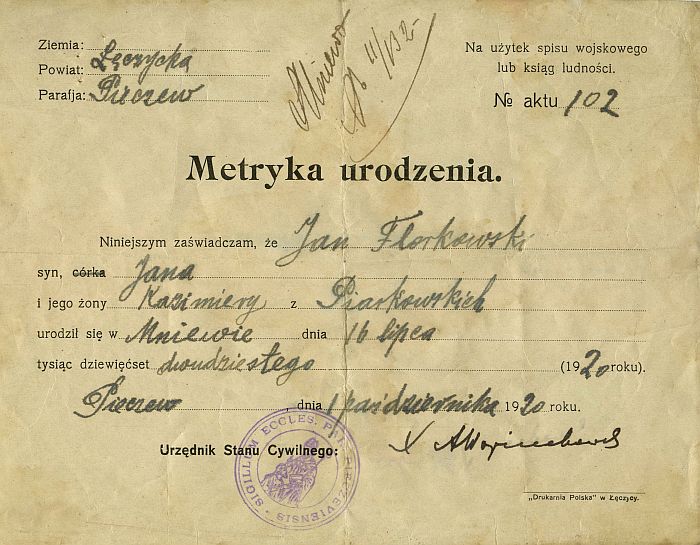 Ziemia:
Powiat: Łęczycka
Parafja: Pieczew
Mniewo
11/132-
Na użytek spisu wojskowego
lub ksiąg ludności.
№ aktu 102
Metryka urodzenia.
Niniejszym zaświadczam, że Jan Florkowski
syn, córka Jana
i jego żony Kazimiery z Piarkowskich
urodził się w Mniewie dnia 16 lipca
tysiąc dziewięćset dwudziestego (1920 roku).
Pieczew, dnia 1 października 1920 roku.
Urzędnik Stanu Cywilnego:
SIGILLUM ECCLES.
„Drukarnia Polska" w Łęczycy.